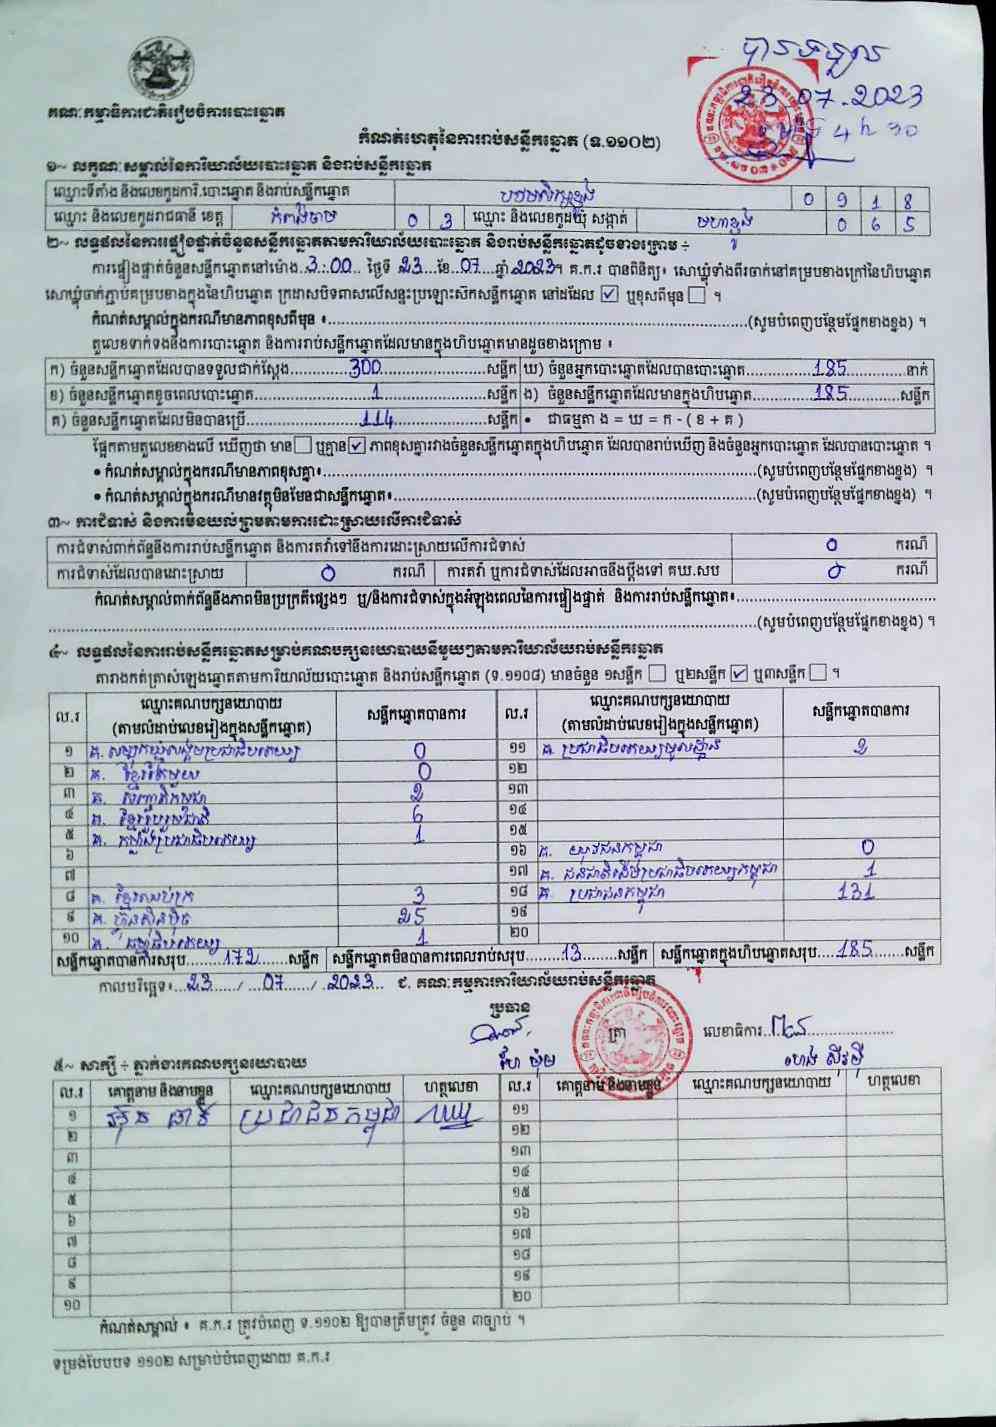 បានទទួល
23.07.2023
4 h 30
គណៈកម្មាធិការជាតិរៀបចំការបោះឆ្នោត
កំណត់ហេតុនៃការរាប់សន្លឹកឆ្នោត (ទ.១១០២)
១~ លក្ខណៈសម្គាល់នៃការិយាល័យបោះឆ្នោត និងរាប់សន្លឹកឆ្នោត
ឈ្មោះទីតាំង និងលេខកូដការិ.បោះឆ្នោត និងរាប់សន្លឹកឆ្នោត 0 9 1 8
ឈ្មោះ និងលេខកូដរាជធានី ខេត្ត កំពង់ចាម 0 3 ឈ្មោះ និងលេខកូដឃុំ សង្កាត់ មហាខ្នង 0 6 5
២~ លទ្ធផលនៃការផ្ទៀងផ្ទាត់ចំនួនសន្លឹកឆ្នោតតាមការិយាល័យបោះឆ្នោត និងរាប់សន្លឹកឆ្នោតដូចខាងក្រោម ÷
ការផ្ទៀងផ្ទាត់ចំនួនសន្លឹកឆ្នោតនៅម៉ោង..3:00.. ថ្ងៃទី 23 ខែ 07 ឆ្នាំ 2023។ គ.ក.រ បានពិនិត្យ៖ សោឃ្លុំទាំងពីរចាក់នៅគម្របខាងក្រៅនៃហិបឆ្នោត
សោឃ្លុំចាក់ភ្ជាប់គម្របខាងក្នុងនៃហិបឆ្នោត ក្រដាសបិទពាសលើសន្ទះប្រឡោះសិកសន្លឹកឆ្នោត នៅដដែល ☑ ឬខុសពីមុន ☐ ។
កំណត់សម្គាល់ក្នុងករណីមានភាពខុសពីមុន ៖........(សូមបំពេញបន្ថែមផ្នែកខាងខ្នង) ។
តួលេខទាក់ទងនឹងការបោះឆ្នោត និងការរាប់សន្លឹកឆ្នោតដែលមានក្នុងហិបឆ្នោតមានដូចខាងក្រោម ៖
ក) ចំនួនសន្លឹកឆ្នោតដែលបានទទួលជាក់ស្តែង......300......សន្លឹក ឃ) ចំនួនអ្នកបោះឆ្នោតដែលបានបោះឆ្នោត......185......នាក់
ខ) ចំនួនសន្លឹកឆ្នោតខូចពេលបោះឆ្នោត......1......សន្លឹក ង) ចំនួនសន្លឹកឆ្នោតដែលមានក្នុងហិបឆ្នោត......185......សន្លឹក
គ) ចំនួនសន្លឹកឆ្នោតដែលមិនបានប្រើ......114......សន្លឹក • ជាធម្មតា ង = ឃ = ក - ( ខ + គ )
ផ្អែកតាមតួលេខខាងលើ ឃើញថា មាន ☐ ឬគ្មាន ☑ ភាពខុសគ្នារវាងចំនួនសន្លឹកឆ្នោតក្នុងហិបឆ្នោត ដែលបានរាប់ឃើញ និងចំនួនអ្នកបោះឆ្នោត ដែលបានបោះឆ្នោត ។
• កំណត់សម្គាល់ក្នុងករណីមានភាពខុសគ្នា៖........(សូមបំពេញបន្ថែមផ្នែកខាងខ្នង) ។
• កំណត់សម្គាល់ក្នុងករណីមានវត្ថុមិនមែនជាសន្លឹកឆ្នោត៖........(សូមបំពេញបន្ថែមផ្នែកខាងខ្នង) ។
៣~ ការជំទាស់ និងការមិនយល់ព្រមតាមការដោះស្រាយលើការជំទាស់
ការជំទាស់ពាក់ព័ន្ធនឹងការរាប់សន្លឹកឆ្នោត និងការតវ៉ាទៅនឹងការដោះស្រាយលើការជំទាស់ 0 ករណី
ការជំទាស់ដែលបានដោះស្រាយ 0 ករណី ការតវ៉ា ឬការជំទាស់ដែលអាចនឹងប្តឹងទៅ គឃ.សប 0 ករណី
កំណត់សម្គាល់ពាក់ព័ន្ធនឹងភាពមិនប្រក្រតីផ្សេងៗ ឬ/និងការជំទាស់ក្នុងអំឡុងពេលនៃការផ្ទៀងផ្ទាត់ និងការរាប់សន្លឹកឆ្នោត៖........
........(សូមបំពេញបន្ថែមផ្នែកខាងខ្នង) ។
៤~ លទ្ធផលនៃការរាប់សន្លឹកឆ្នោតសម្រាប់គណបក្សនយោបាយនីមួយៗតាមការិយាល័យរាប់សន្លឹកឆ្នោត
តារាងកត់ត្រាសំឡេងឆ្នោតតាមការិយាល័យបោះឆ្នោត និងរាប់សន្លឹកឆ្នោត (ទ.១១០៨) មានចំនួន ១សន្លឹក ☐ ឬ២សន្លឹក ☑ ឬ៣សន្លឹក ☐ ។
ល.រ ឈ្មោះគណបក្សនយោបាយ (តាមលំដាប់លេខរៀងក្នុងសន្លឹកឆ្នោត) សន្លឹកឆ្នោតបានការ ល.រ ឈ្មោះគណបក្សនយោបាយ (តាមលំដាប់លេខរៀងក្នុងសន្លឹកឆ្នោត) សន្លឹកឆ្នោតបានការ
១ គ. សំបុកឃ្មុំសង្គមប្រជាធិបតេយ្យ 0 ១១ គ. ប្រជាធិបតេយ្យមូលដ្ឋាន 2
២ គ. ខ្មែរតែមួយ 0 ១២
៣ គ. សញ្ជាតិកម្ពុជា 2 ១៣
៤ គ. ខ្មែររួបរួមជាតិ 6 ១៤
៥ គ. កម្លាំងប្រជាធិបតេយ្យ 1 ១៥
៦ ១៦ គ. យុវជនកម្ពុជា 0
៧ ១៧ គ. ជនជាតិដើមប្រជាធិបតេយ្យកម្ពុជា 1
៨ គ. ខ្មែរឈប់ក្រ 3 ១៨ គ. ប្រជាជនកម្ពុជា 131
៩ គ. ហ៊្វុនស៊ិនប៉ិច 25 ១៩
១០ គ. ធម្មាធិបតេយ្យ 1 ២០
សន្លឹកឆ្នោតបានការសរុប......172......សន្លឹក សន្លឹកឆ្នោតមិនបានការពេលរាប់សរុប......13......សន្លឹក សន្លឹកឆ្នោតក្នុងហិបឆ្នោតសរុប......185......សន្លឹក
កាលបរិច្ឆេទ៖...23...../...07...../..2023... ជ. គណៈកម្មការការិយាល័យរាប់សន្លឹកឆ្នោត
ប្រធាន
ត្រា លេខាធិការ
៥~ សាក្សី ÷ ភ្នាក់ងារគណបក្សនយោបាយ
ល.រ គោត្តនាម និងនាមខ្លួន ឈ្មោះគណបក្សនយោបាយ ហត្ថលេខា ល.រ គោត្តនាម និងនាមខ្លួន ឈ្មោះគណបក្សនយោបាយ ហត្ថលេខា
១ ប្រជាជនកម្ពុជា ១១
២ ១២
៣ ១៣
៤ ១៤
៥ ១៥
៦ ១៦
៧ ១៧
៨ ១៨
៩ ១៩
១០ ២០
កំណត់សម្គាល់ ៖ គ.ក.រ ត្រូវបំពេញ ទ.១១០២ ឱ្យបានត្រឹមត្រូវ ចំនួន ៣ច្បាប់ ។
ទម្រង់បែបបទ ១១០២ សម្រាប់បំពេញដោយ គ.ក.រ